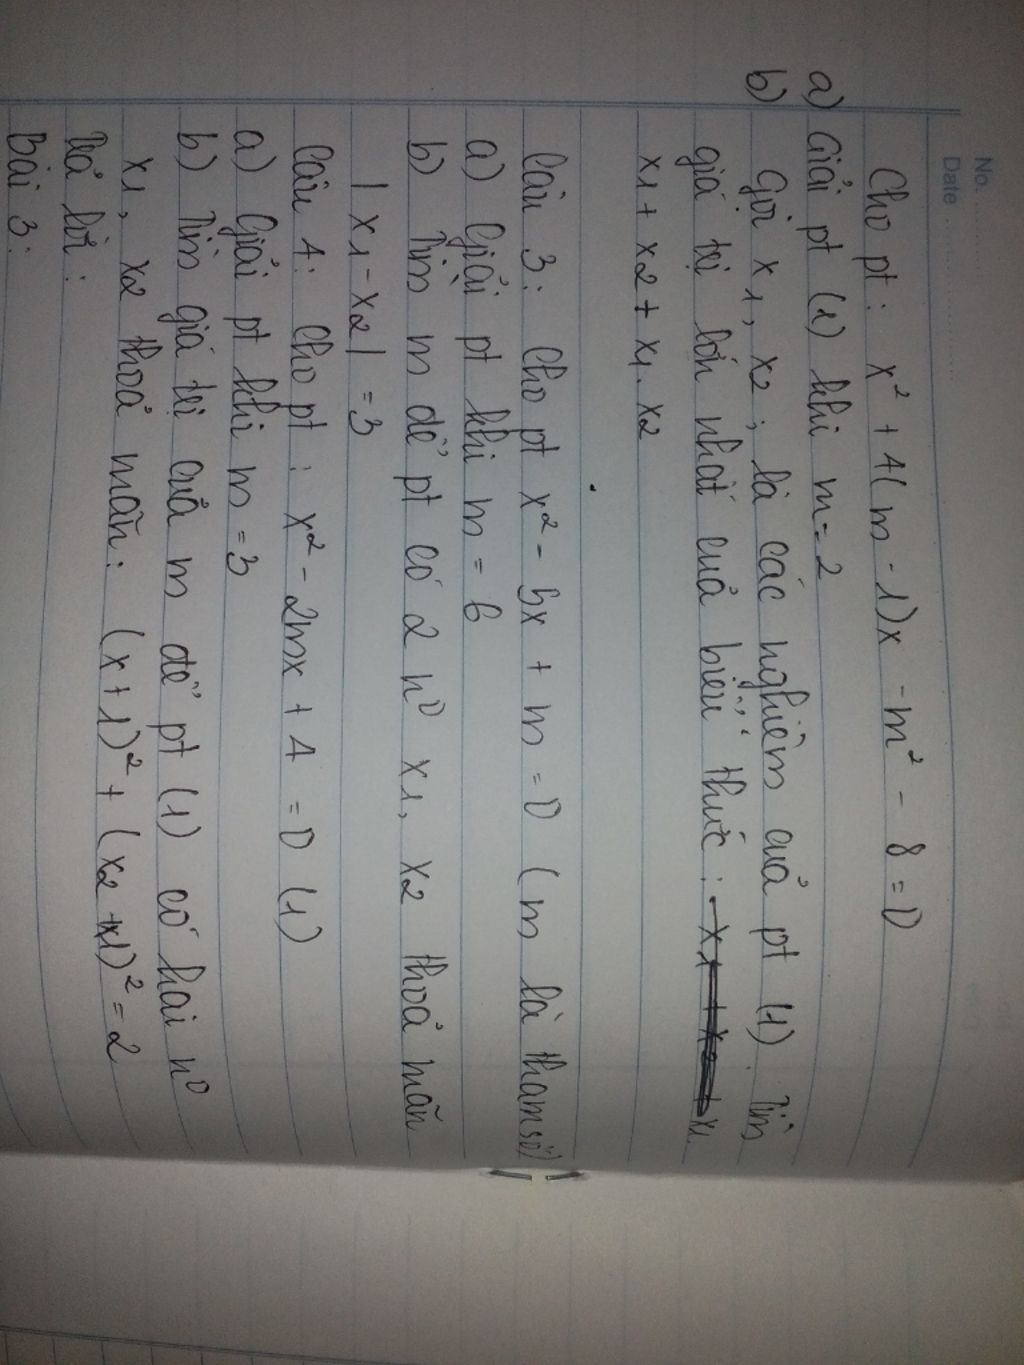 No. ..........
Date ....................
Cho pt: x² + 4(m - 1)x - m² - 8 = 0
a) Giải pt (1) khi m = 2
b) Gọi x1, x2; là các nghiệm của pt (1). Tìm
giá trị lớn nhất của biểu thức:
x1 + x2 + x1.x2
Câu 3: Cho pt x² - 5x + m = 0 (m là tham số)
a) Giải pt khi m = 6
b) Tìm m để pt có 2 n⁰ x1, x2 thoả mãn
| x1 - x2 | = 3
Câu 4: Cho pt: x² - 2mx + 4 = 0 (1)
a) Giải pt khi m = 3
b) Tìm giá trị của m để pt (1) có hai n⁰
x1, x2 thoả mãn: (x + 1)² + (x2 + 1)² = 2
Trả lời:
Bài 3: